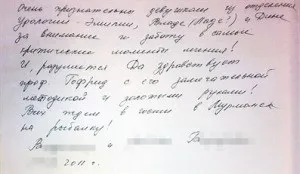 Очень признательны девушкам из отделения
урологии - Эмилии, Владе (Ладе!) и Дине
за внимание и заботу в самые
критические моменты лечения!
И, разумеется Да здравствует
проф. Гефрид с его замечательной
методикой и золотыми руками!
Всех ждем в гости в Мурманск
на рыбалку!
и
2011 г.